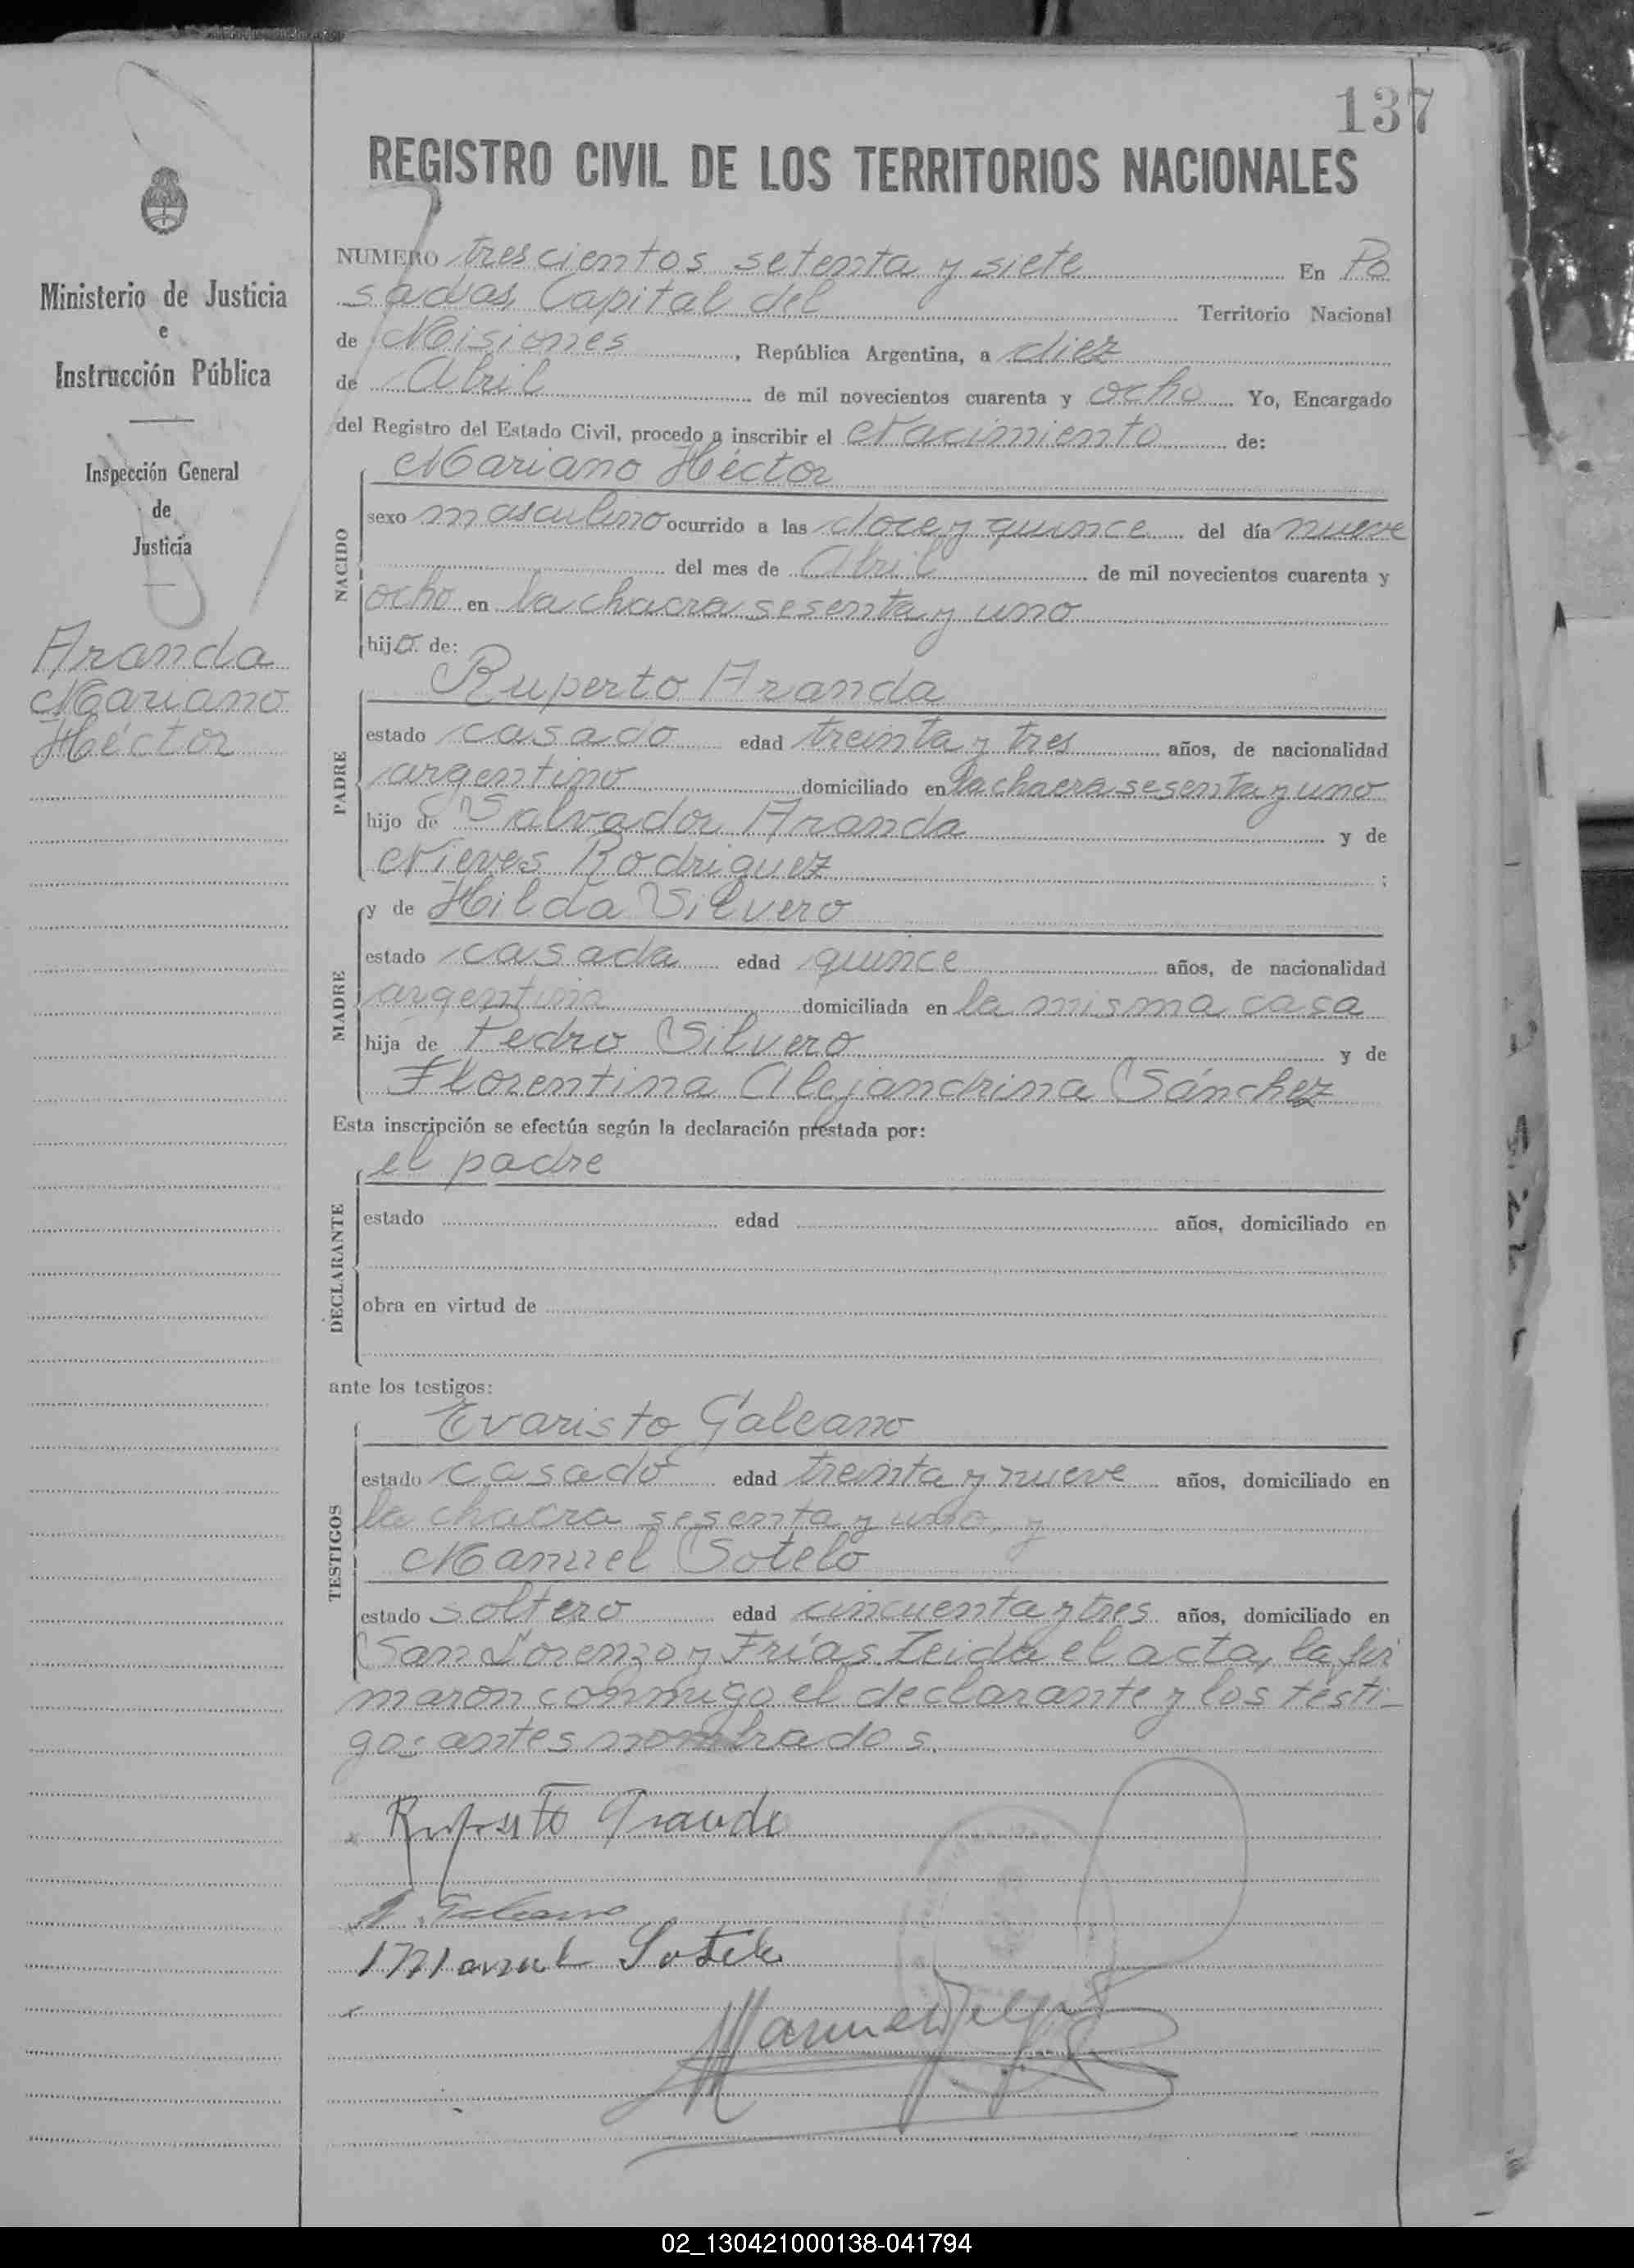 137
REGISTRO CIVIL DE LOS TERRITORIOS NACIONALES
Ministerio de Justicia
e
Instrucción Pública
Inspección General
de
Justicia
Aranda
Mariano
Héctor
NUMERO trescientos setenta y siete En Po
sadas, Capital del Territorio Nacional
de Misiones, República Argentina, a diez
de Abril de mil novecientos cuarenta y ocho Yo, Encargado
del Registro del Estado Civil, procedo a inscribir el Nacimiento de:
NACIDO
Mariano Héctor
sexo masculino ocurrido a las doce y quince del día nueve
del mes de Abril de mil novecientos cuarenta y
ocho en la chacra sesenta y uno
hijo de:
PADRE
Ruperto Aranda
estado casado edad treinta y tres años, de nacionalidad
argentino domiciliado en la chacra sesenta y uno
hijo de Salvador Aranda y de
Nieves Rodriguez ;
MADRE
y de Hilda Silvero
estado casada edad quince años, de nacionalidad
argentina domiciliada en la misma casa
hija de Pedro Silvero y de
Florentina Alejandrina Sánchez
Esta inscripción se efectúa según la declaración prestada por:
DECLARANTE
el padre
estado edad años, domiciliado en
obra en virtud de
ante los testigos:
TESTIGOS
Evaristo Galeano
estado casado edad treinta y nueve años, domiciliado en
la chacra sesenta y uno, y
Manuel Sotelo
estado soltero edad cincuenta y tres años, domiciliado en
San Lorenzo y Frías. Leida el acta, la fir
maron conmigo el declarante y los testi-
gos antes nombrados.
Ruperto Aranda
Galeano
Manuel Sotelo
Manuel
02_130421000138-041794